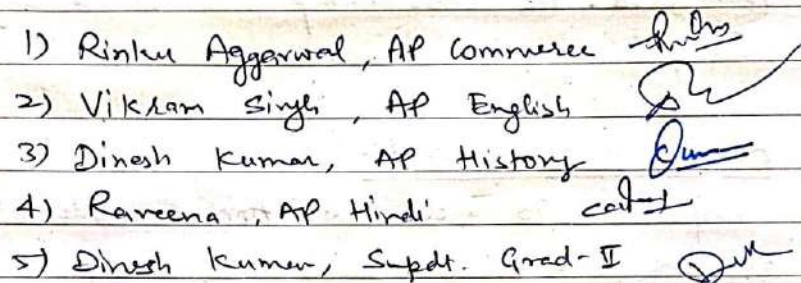 1) Rinku Aggarwal, AP Commerce
2) Vikram Singh, AP English
3) Dinesh Kumar, AP History
4) Raveena, AP Hindi
5) Dinesh Kumar, Supdt. Grad-II